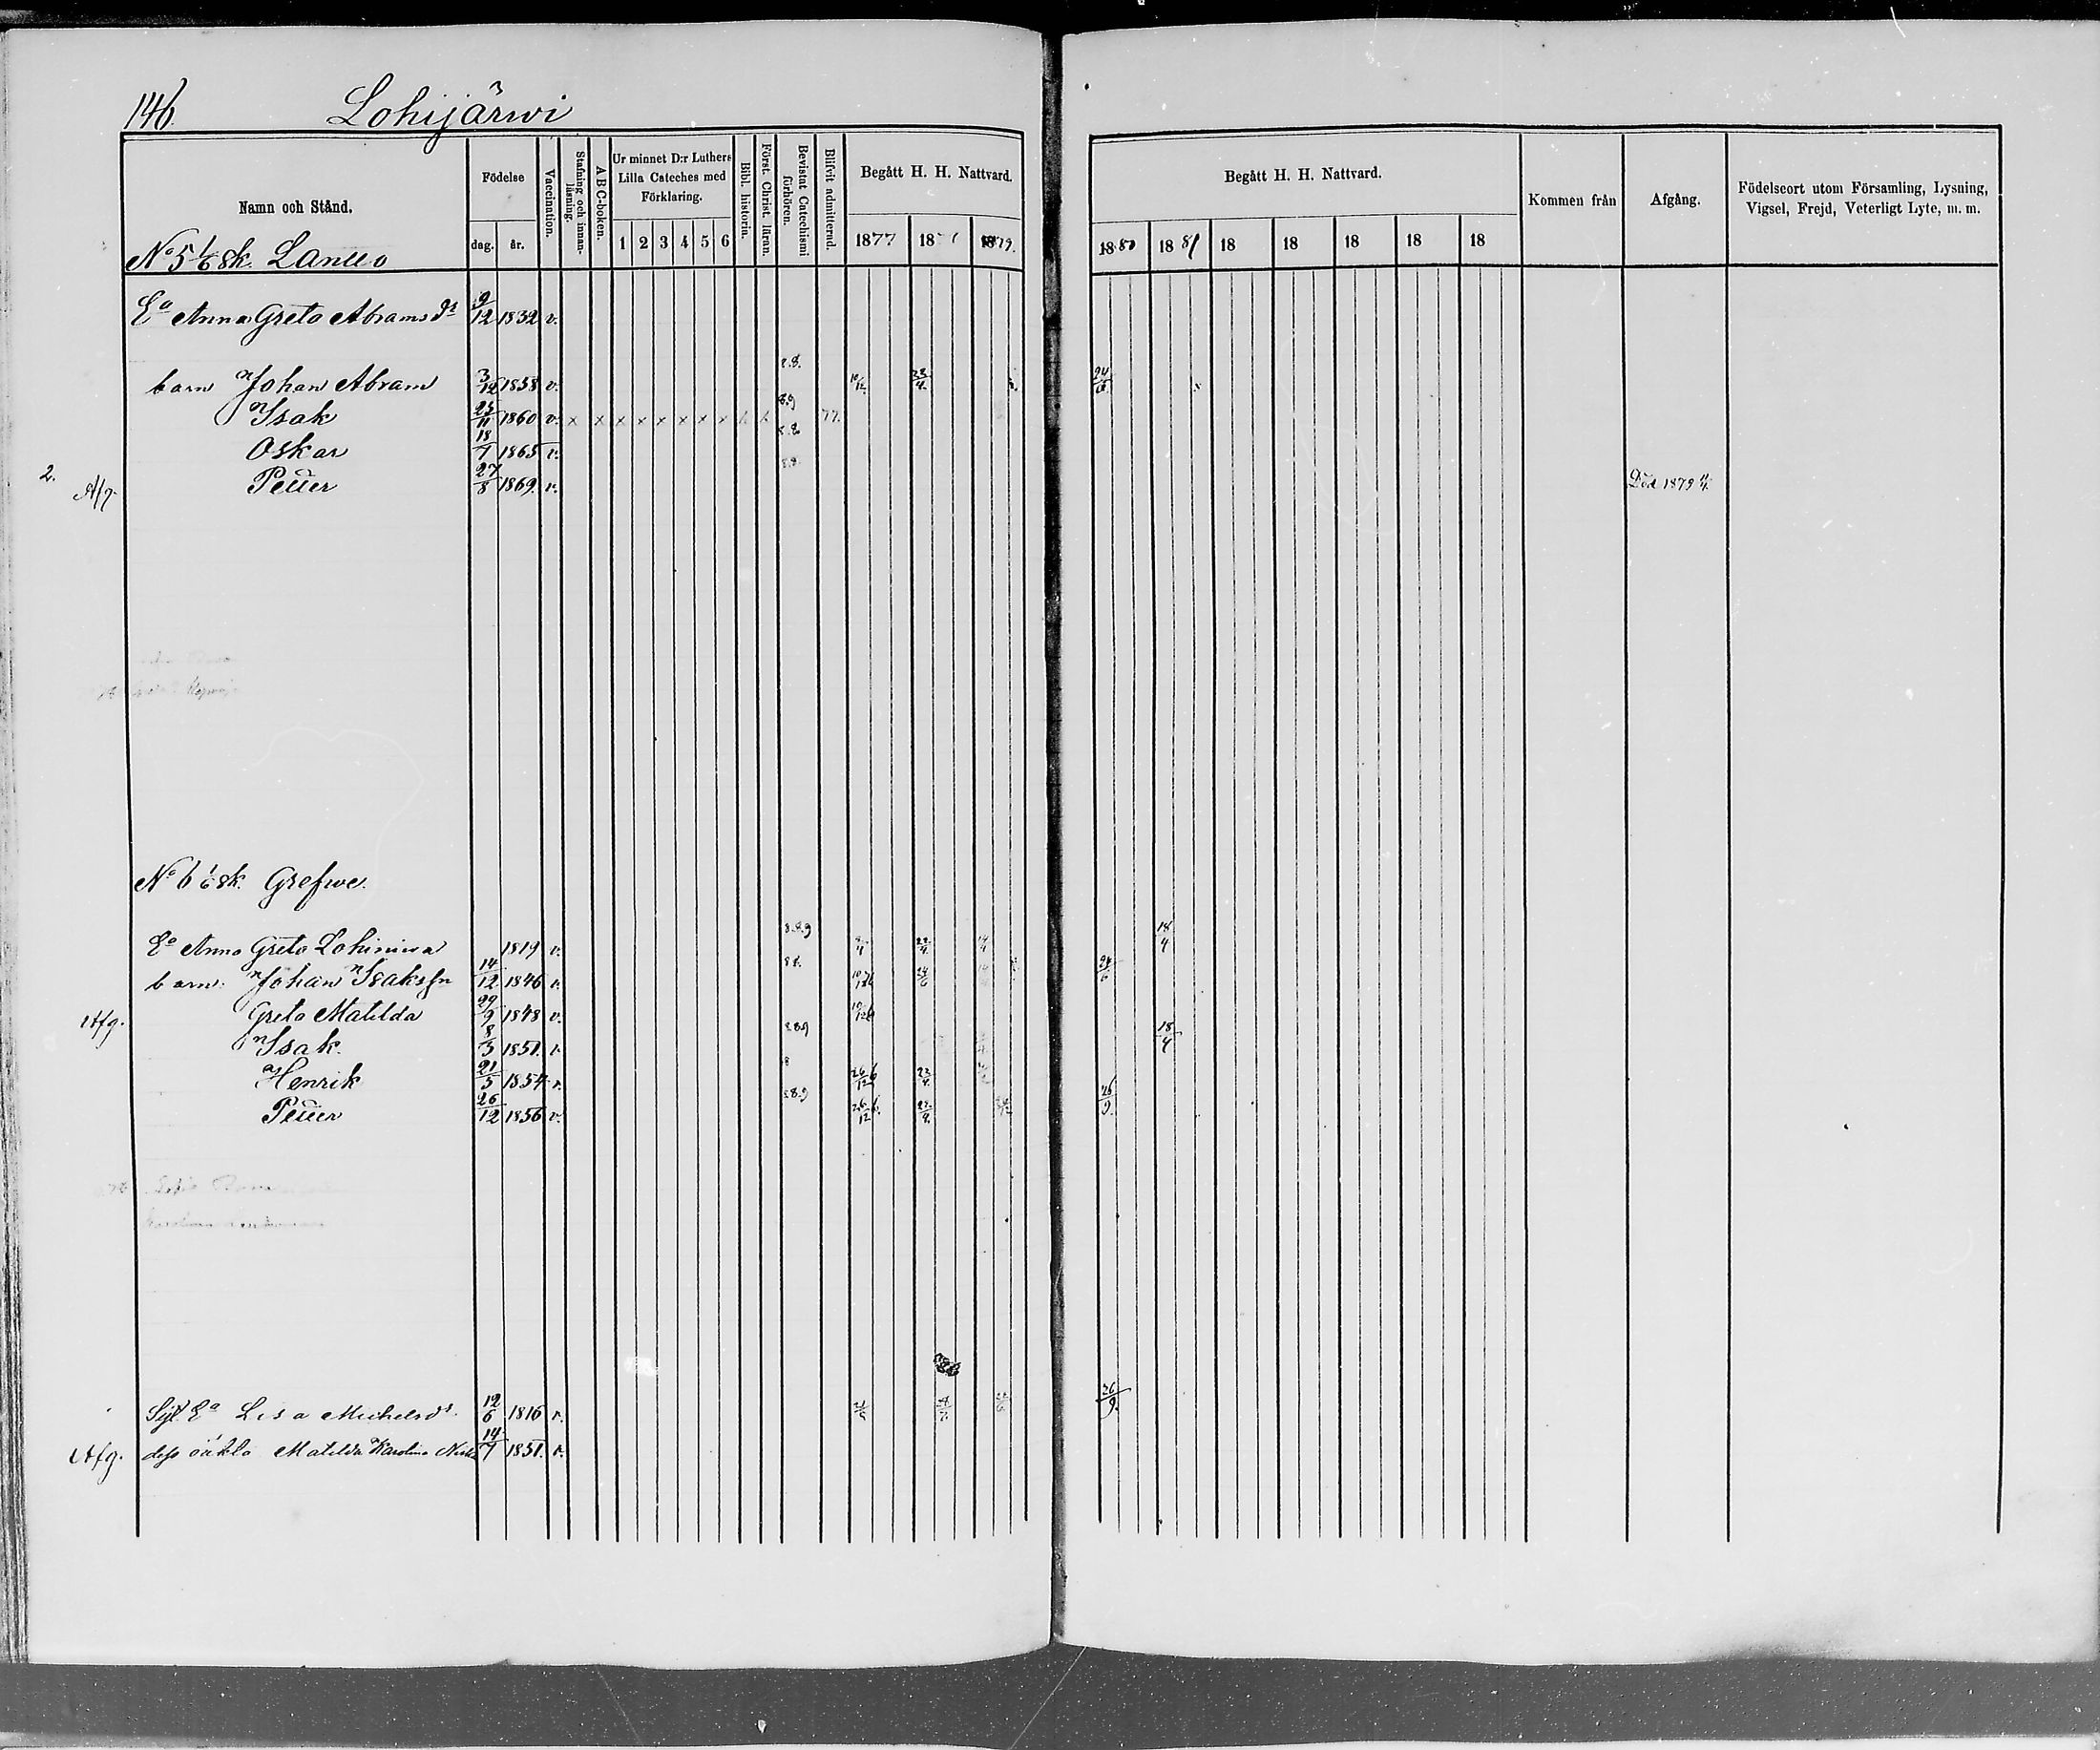 146. Lohijärwi
Namn och Stånd.
Födelse
dag. år.
Vaccination.
Stafning och innanläsning.
A B C-boken.
Ur minnet D:r Luthers Lilla Cateches med Förklaring.
1 2 3 4 5 6
Bibl. historia.
Först. Christ. läran.
Bevistat Catechismi förhören.
Blifvit admitterad.
Begått H. H. Nattvard.
1877 18 1879.
Begått H. H. Nattvard.
1880 1881 18 18 18 18 18
Kommen från
Afgång.
Födelseort utom Församling, Lysning, Vigsel, Frejd, Veterligt Lyte, m. m.
No 5 1/6 sk.
Ea Anna Greta Abramsdr 9/12 1832 v.
barn Johan Abram 3/12 1858 v. 8.8. 10/12 23/4. 24/6.
Isak 25/11 1860 v. x x x x x x x x 8.9 77.
Oskar 18/7 1865 v. 8.8
2. Afg. Petter 27/8 1869. v. 8.8. Död 1879
No 6 1/6 sk. Grefwe.
Ea Anna Greta Lohiniwa 1819 v. 8.8.9 22/4. 18/4
barn. Johan Isaksson 14/12 1846 v. 8.8. 10/12 24/6
Afg. Greta Matilda 29/9 1848 v. 10/12
Isak. 8/3 1851. v. 8.8.9 18/4
Henrik 21/5 1854 v. 8 26/12 6 22/4.
Petter 26/12 1856 v. 8.8.9 26/12 6. 22/4. 26/9.
Syt. Ea Lisa Michelsdr. 12/6 1816 v. 26/9.
Afg. dess Matilda Karolina 14/7 1851. v.